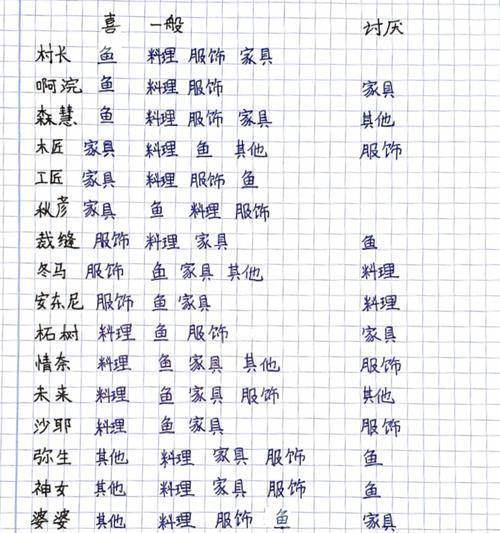 喜 一般 讨厌
村长 鱼 料理 服饰 家具
啊浣 鱼 料理 服饰 家具
森慧 鱼 料理 服饰 家具 其他
木匠 家具 料理 鱼 其他 服饰
工匠 家具 料理 服饰 鱼
秋彦 家具 鱼 料理 服饰
裁缝 服饰 料理 家具 鱼
冬马 服饰 鱼 家具 其他 料理
安东尼 服饰 鱼 家具 料理
柘树 料理 鱼 服饰 家具
情奈 料理 鱼 家具 其他 服饰
未来 料理 鱼 家具 服饰 其他
沙耶 料理 鱼 家具 服饰
弥生 其他 料理 家具 服饰 鱼
神女 其他 料理 家具 服饰 鱼
婆婆 其他 料理 服饰 鱼 家具